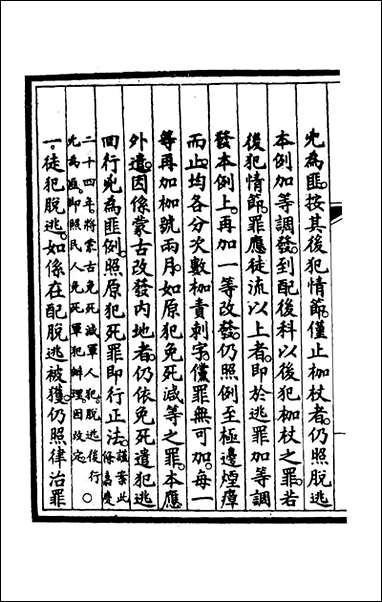 兇為匪。按其後犯情節。僅止枷杖者。仍照脫逃
本例加等調發。到配後科以後犯枷杖之罪。若
後犯情節。罪應徒流以上者。即於逃罪加等調
發本例上。再加一等改發。仍照例至極邊煙瘴
而止。均各分次數枷責刺字。儻罪無可加。每一
等再加枷號兩月。如原犯免死減等之罪。本應
外遣。因係蒙古改發內地者。仍依免死遣犯逃
回行兇為匪例。照原犯死罪即行正法。謹案此條嘉慶
二十四年。將蒙古免死減軍人犯。脫逃後行兇為匪。即照民人免死軍犯辦理因改定。○
一。徒犯脫逃。如係在配脫逃被獲。仍照律治罪